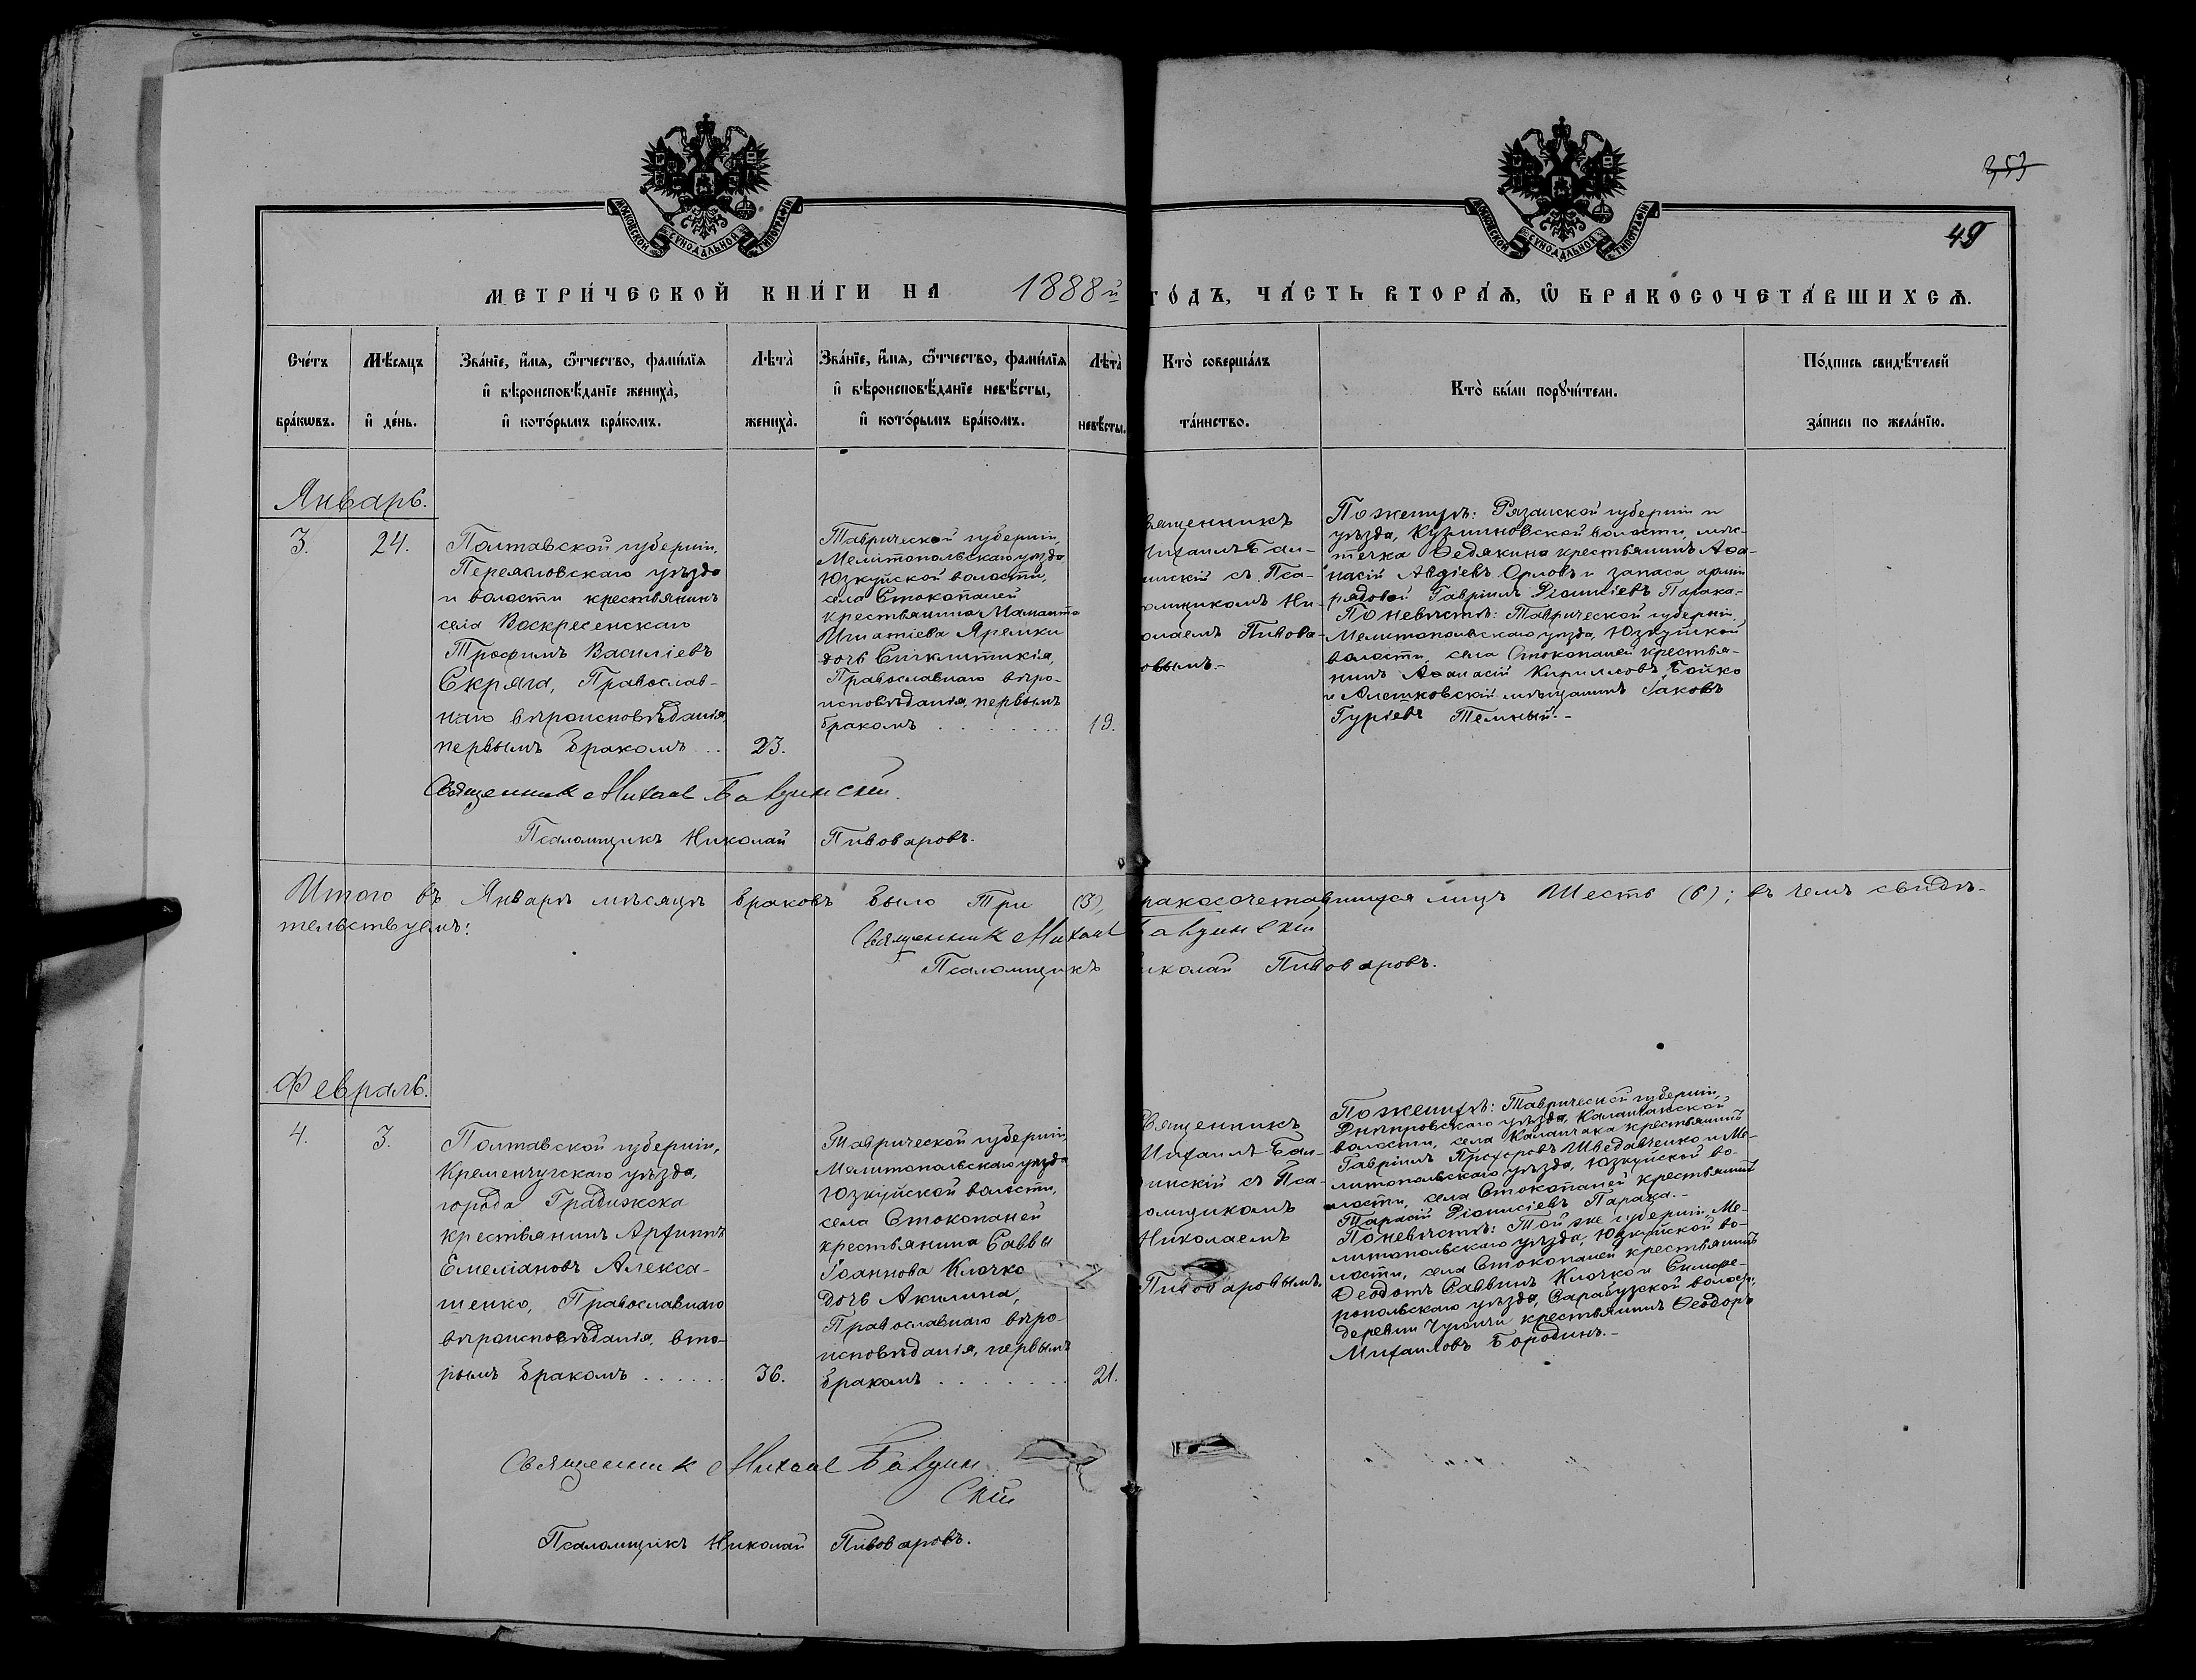 353
49
МОСКОВСКОЙ СУНОДАЛЬНОЙ ТИПОГРАФІИ
МОСКОВСКОЙ СУНОДАЛЬНОЙ ТИПОГРАФІИ
МЕТРИ́ЧЕСКОЙ КНИ́ГИ НА 1888й ГО́ДЪ, ЧА́СТЬ ВТОРА́Ѧ, Ѡ҆ БРАКОСОЧЕТА́ВШИХСѦ.
Сче́тъ
бра́кѡвъ.
Мѣ́сяцъ
и҆ де́нь.
Зва́нїе, и҆́мя, ѻ҆́тчество, фами́лїя
и҆ вѣроисповѣ́данїе жениха̀,
и҆ кото́рымъ бра́комъ.
Лѣта̀
жениха̀.
Зва́нїе, и҆́мя, ѻ҆́тчество, фами́лїя
и҆ вѣроисповѣ́данїе невѣ́сты,
и҆ кото́рымъ бра́комъ.
Лѣта̀
невѣ́сты.
Кто̀ соверша́лъ
та́инство.
Кто̀ бы́ли порꙋчи́тели.
По́дпись свидѣ́телей
за́писи по жела́нїю.
Январь.
3.
24.
Полтавской губерніи,
Переяловскаго уѣзда
и волости крестьянинъ
села Воскресенскаго
Трофимъ Василіевъ
Скряга, Православ-
наго вѣроисповѣданія,
первымъ бракомъ ..
23.
Таврической губерніи,
Мелитопольскаго уѣзда
Юзкуйской волости,
села Стокопаней
крестьянина Маманта
Игнатіева Яремки
дочь Синклитикія,
Православнаго вѣро-
исповѣданія, первымъ
бракомъ . . . . . . .
19.
вященникъ
ихаилъ Бал-
инскій съ Пса-
омщикомъ Ни-
олаемъ Пивова-
овымъ.-
По женихѣ: Рязанской губерніи и
уѣзда, Кузминовской волости, мѣс-
течка Федякина крестьянинъ Аѳа-
насій Авдіевъ Орловъ и запаса арміи
рядовой Гавріилъ Діонисіевъ Парака-
По невѣстѣ: Таврической губерніи,
Мелитопольскаго уѣзда, Юзкуйской
волости, села Стокопаней крестья-
нинъ Аѳанасій Кирилловъ Бойко
и Алешковскій мѣщанинъ Іаковъ
Гуріевъ Темный.-
Священник Михаил
Псаломщикъ Николай Пивоваровъ.
Итого въ Январѣ мѣсяцѣ браковъ было Три (3), бракосочетавшихся лицъ Шесть (6); въ чемъ свидѣ-
тельствуемъ:
Священник Михаил
Псаломщикъ Николай Пивоваровъ.
Февраль.
4.
3.
Полтавской губерніи,
Кременчугскаго уѣзда,
города Градижска
крестьянинъ Архиппъ
Емеліановъ Алекса-
шенко, Православнаго
вѣроисповѣданія, вто-
рымъ бракомъ . . . . . .
36.
Таврической губерніи,
Мелитопольскаго уѣзда
Юзкуйской волости,
села Стокопаней
крестьянина Саввы
Іоаннова Клочко
дочь Акилина,
Православнаго вѣро-
исповѣданія, первымъ
бракомъ . . . . . . . .
21.
Священникъ
Михаилъ Бал-
инскій съ Пса-
омщикомъ
Николаемъ
Пивоваровымъ
По женихѣ: Таврической губерніи,
Днѣпровскаго уѣзда, Каланчакской
волости, села Каланчака крестьянинъ
Гавріилъ Прохоровъ Шведавченко и Ме-
литопольскаго уѣзда, Юзкуйской во-
лости, села Стокопаней крестьянинъ
Тарасій Діонисіевъ Парака.-
По невѣстѣ: Той же губерніи, Ме-
литопольскаго уѣзда, Юзкуйской во-
лости, села Стокопаней крестьянинъ
Ѳеодотъ Саввинъ Клочко и Симфе-
ропольскаго уѣзда, Сарабузской волости,
деревни крестьянинъ Ѳеодоръ
Михаиловъ Бородинъ.-
Священник Михаил
Псаломщикъ Николай Пивоваровъ.